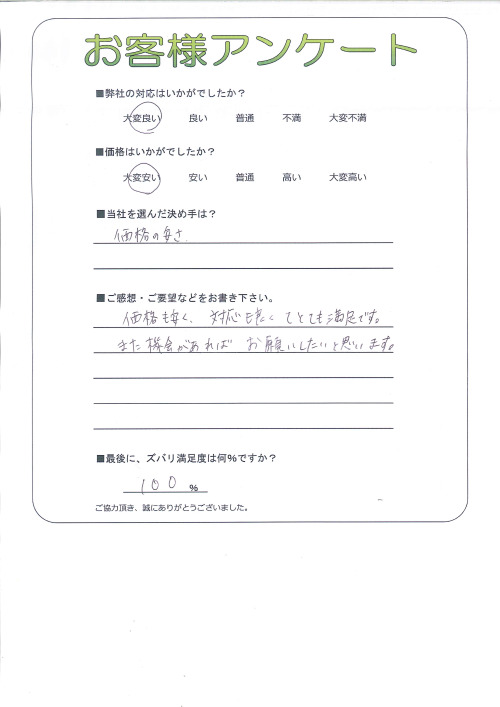 お客様アンケート
■弊社の対応はいかがでしたか?
大変良い 良い 普通 不満 大変不満
■価格はいかがでしたか?
大変安い 安い 普通 高い 大変高い
■当社を選んだ決め手は?
価格の安さ
■ご感想・ご要望などをお書き下さい。
価格も安く、対応も良くてとても満足です。
また機会があれば お願いしたいと思います。
■最後に、ズバリ満足度は何%ですか?
100 %
ご協力頂き、誠にありがとうございました。